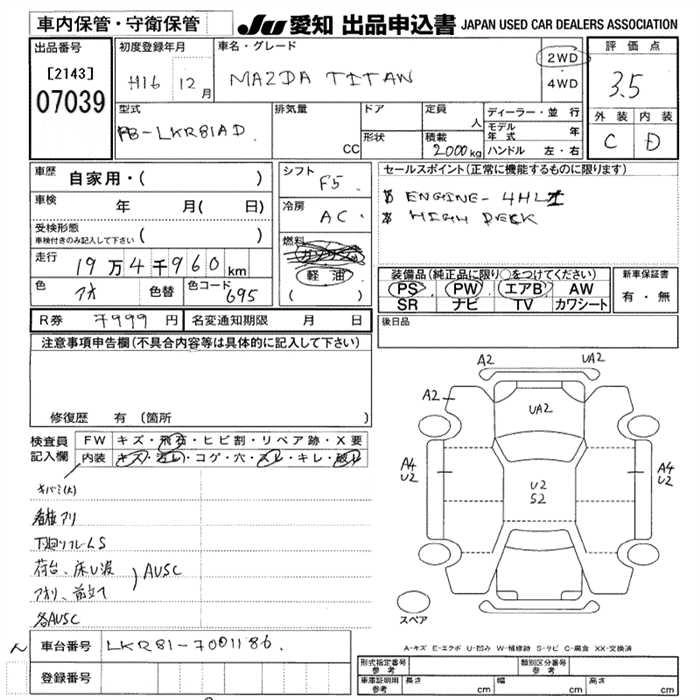 車内保管・守衛保管
JU 愛知 出品申込書 JAPAN USED CAR DEALERS ASSOCIATION
出品番号
[2143]
07039
初度登録年月
H16 12月
車名・グレード
MAZDA TITAN
2WD
4WD
評価点
3.5
外装 内装
C D
型式
PB-LKR81AD
排気量
CC
ドア
形状
定員
人
積載
2000kg
ディーラー・並行
モデル年式 年
ハンドル 左・右
車歴
自家用・( )
車検 年 月( 日)
受検形態
車検付きのみ記入して下さい ( )
走行 19万4千960km
色 アオ 色替 色コード 695
R券 7999円 名変通知期限 月 日
シフト
F5
冷房
AC
燃料
ガソリン
軽油
( )
セールスポイント(正常に機能するものに限ります)
ENGINE-4HL1
HIGH DECK
装備品(純正品に限り○をつけてください)
PS PW エアB AW
SR ナビ TV カワシート
新車保証書
有・無
後日品
注意事項申告欄(不具合内容等は具体的に記入して下さい)
修復歴 有(箇所 )
検査員記入欄
FW キズ・飛石・ヒビ割・リペア跡・X要
内装 キズ・汚レ・コゲ・穴・スレ・キレ・破レ
キバミ(大)
看板アリ
下廻リフレームS
荷台、床U波
アオリ、前立て
AUSC
各AUSC
車台番号 LKR81-7001186
登録番号
A2 UA2
A2
UA2
A4
U2
U2
S2
A4
U2
スペア
A-キズ E-エクボ U-凹み W-補修跡 S-サビ C-腐食 XX-交換済
形式指定番号 参考
類別区分番号 参考
車庫証明用 参考
長さ cm
幅 cm
高さ cm